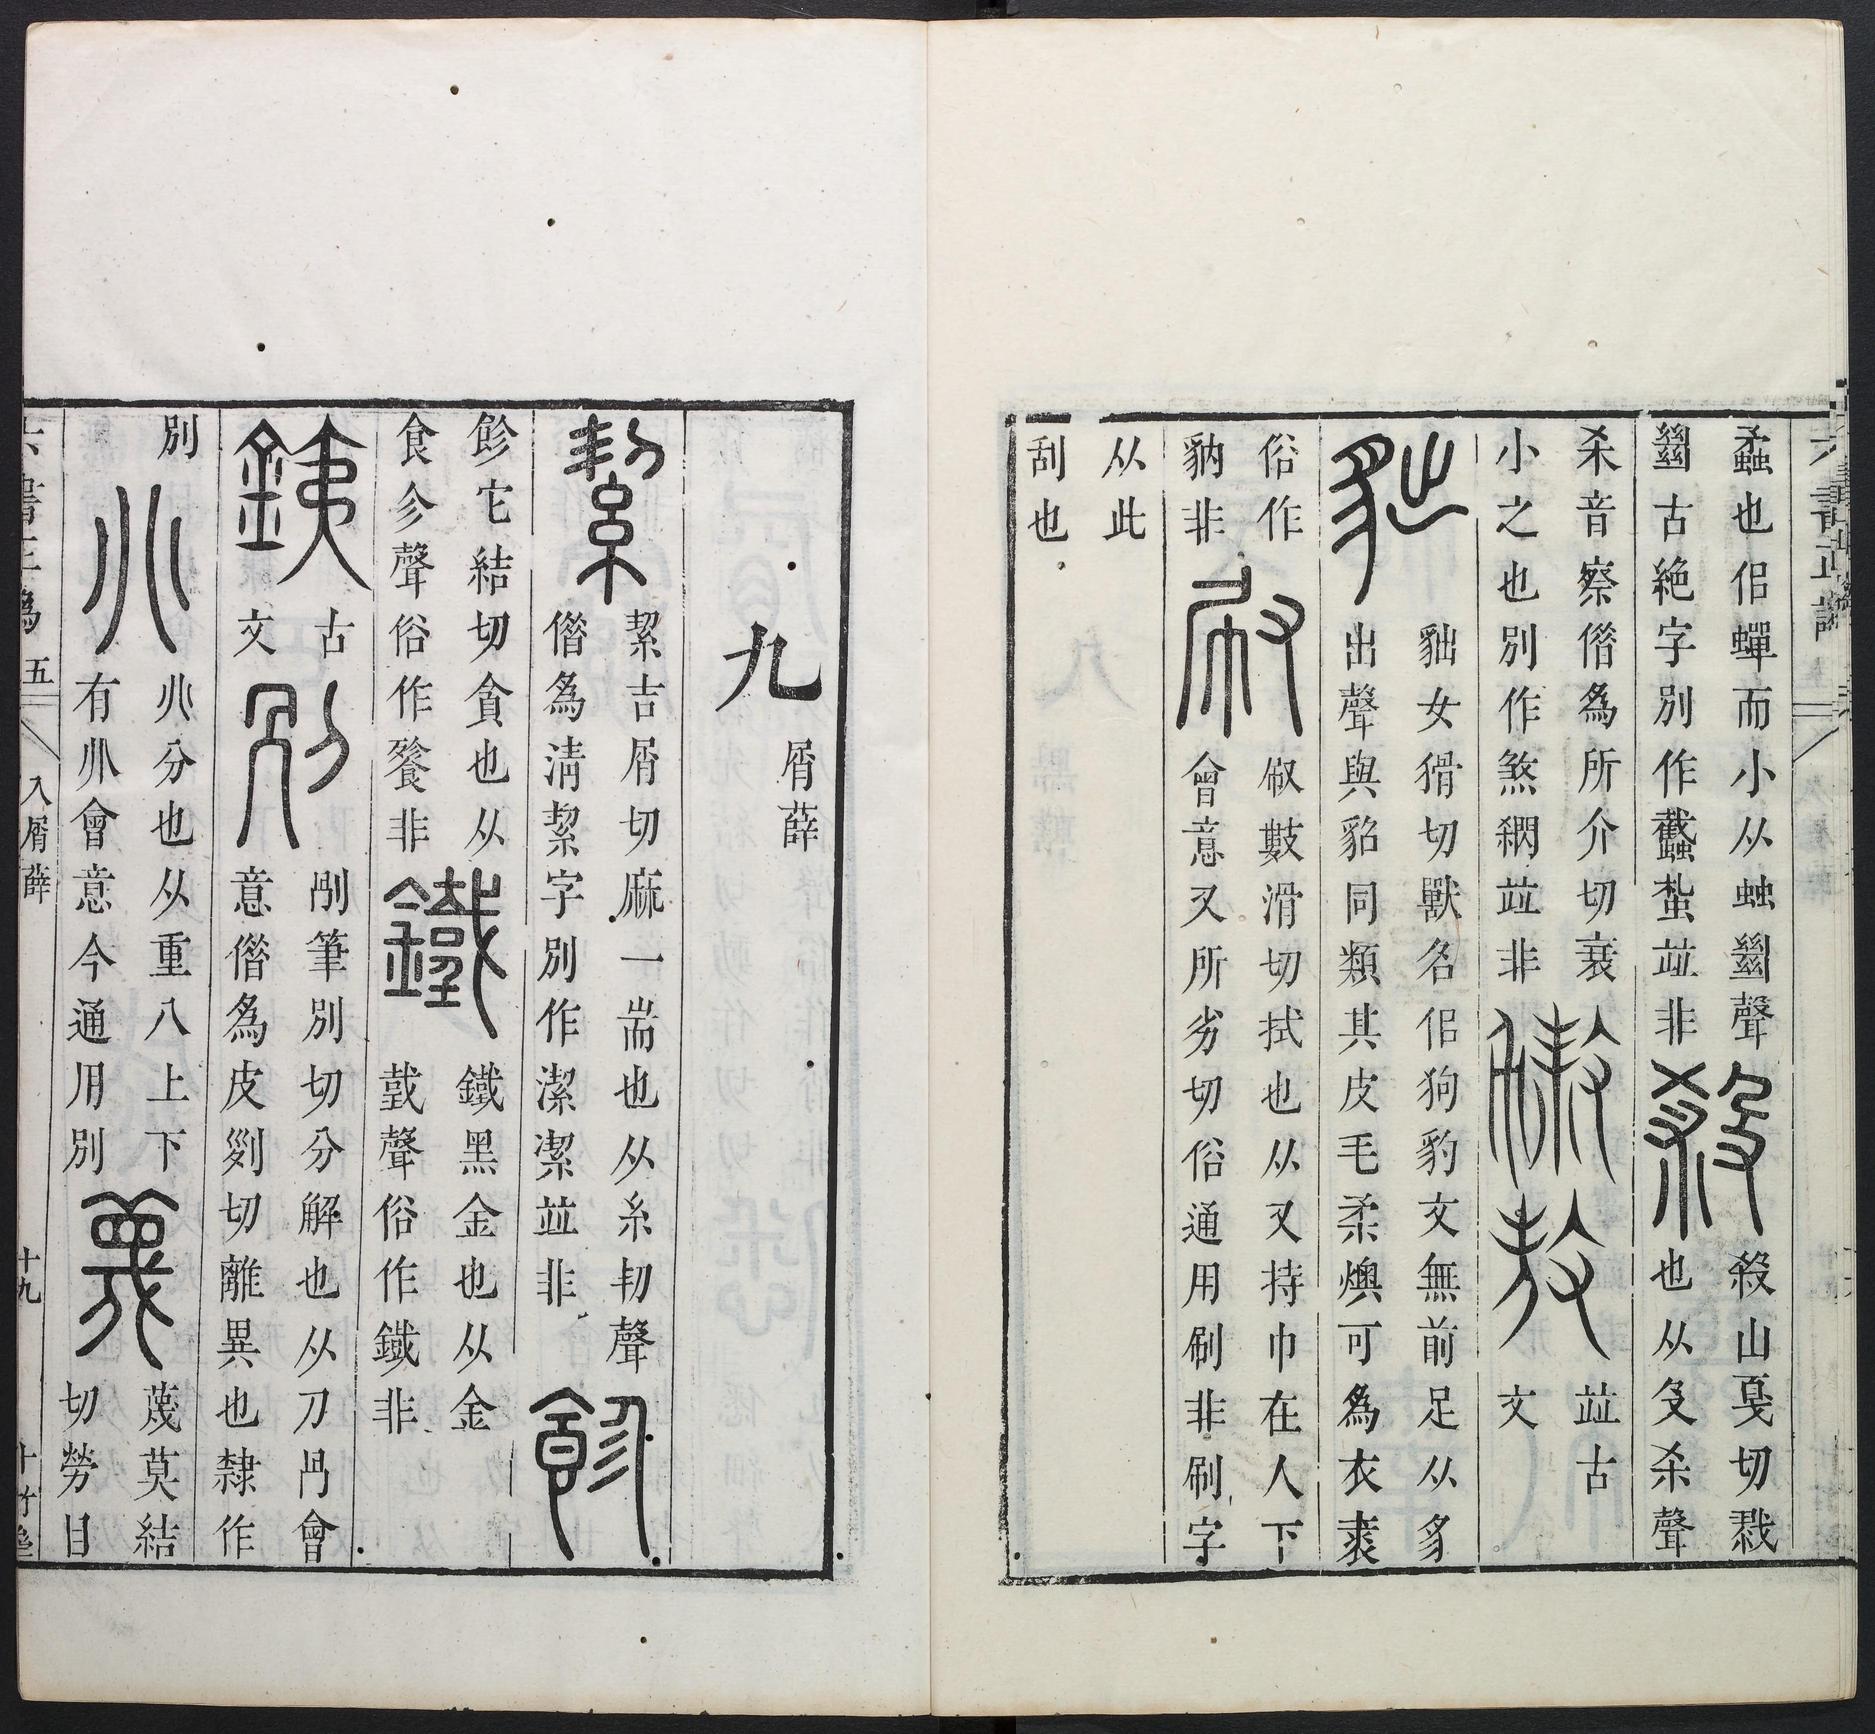 蟊也佀蟬而小从䖵㡭聲
㡭古絶字別作蠽蚻並非
殺
殺山戛切戮
也从殳杀聲
杀音察僣爲所介切衰
小之也別作煞㴋並非
並古
文
貀女猾切獸名佀狗豹文無前足从豸
出聲與貂同類其皮毛柔燠可爲衣裘
俗作
豽非
㕞
㕞數滑切拭也从又持巾在人下
會意又所劣切俗通用刷非刷字
从此
刮也
九
屑薛
絜
絜吉屑切麻一耑也从糸㓞聲
僣爲淸絜字別作潔㓗並非
飻
飻它結切貪也从
食㐱聲俗作餮非
鐵
鐵黑金也从金
𢧜聲俗作鐡非
銕
古
文
別
刐筆別切分解也从刀冎會
意僣爲皮𠛰切離異也隸作
別
𠔁
𠔁分也从重八上下
有𠔁會意今通用別
蔑
蔑莫結
切勞目
六書正譌
五
入屑薛
十九
十竹